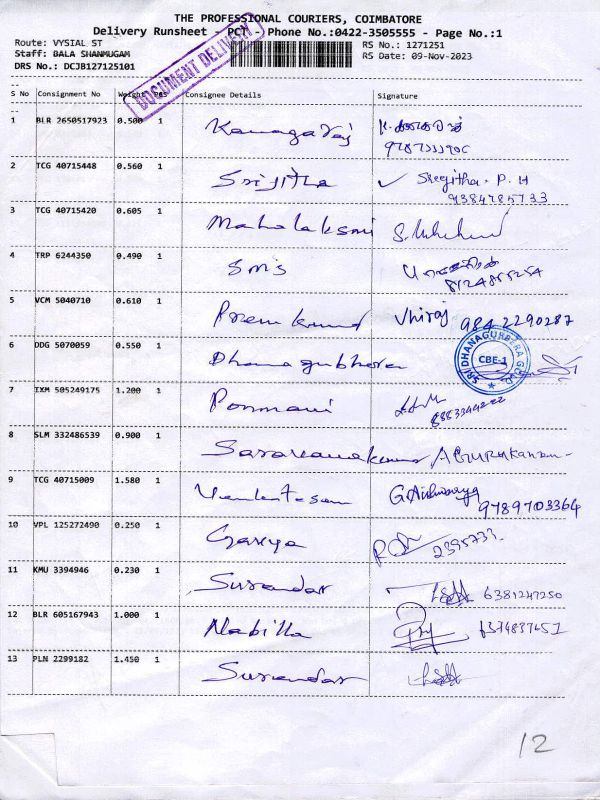 THE PROFESSIONAL COURIERS, COIMBATORE
Delivery Runsheet - PCT - Phone No.:0422-3505555 - Page No.:1
Route: VYSIAL ST RS No.: 1271251
Staff: BALA SHANMUGAM RS Date: 09-Nov-2023
DRS No.: DCJB127125101
DOCUMENT DELIVERY
S No Consignment No Weight Pcs Consignee Details Signature
1 BLR 2650517923 0.500 1 Kanagaraj
2 TCG 40715448 0.560 1 Srijitha ✓ Sregitha. P. H
9384785733
3 TCG 40715420 0.605 1 Mahalaksmi
4 TRP 6244350 0.490 1 SMS
5 VCM 5040710 0.610 1 Prem kumar Vhiraj 9842290287
6 DDG 5070059 0.550 1 Dhanagubhera
SRI DHANAGUBERA GOLD
CBE-1
7 IXM 505249175 1.200 1 Ponmani
8 SLM 332486539 0.900 1 Saravanakumar
9 TCG 40715009 1.580 1 Venkatesan G. Aishwarya
9789703364
10 VPL 125272490 0.250 1
11 KMU 3394946 0.230 1 Surendar 6381247250
12 BLR 605167943 1.000 1 Nabilla
13 PLN 2299182 1.450 1 Surendar
12